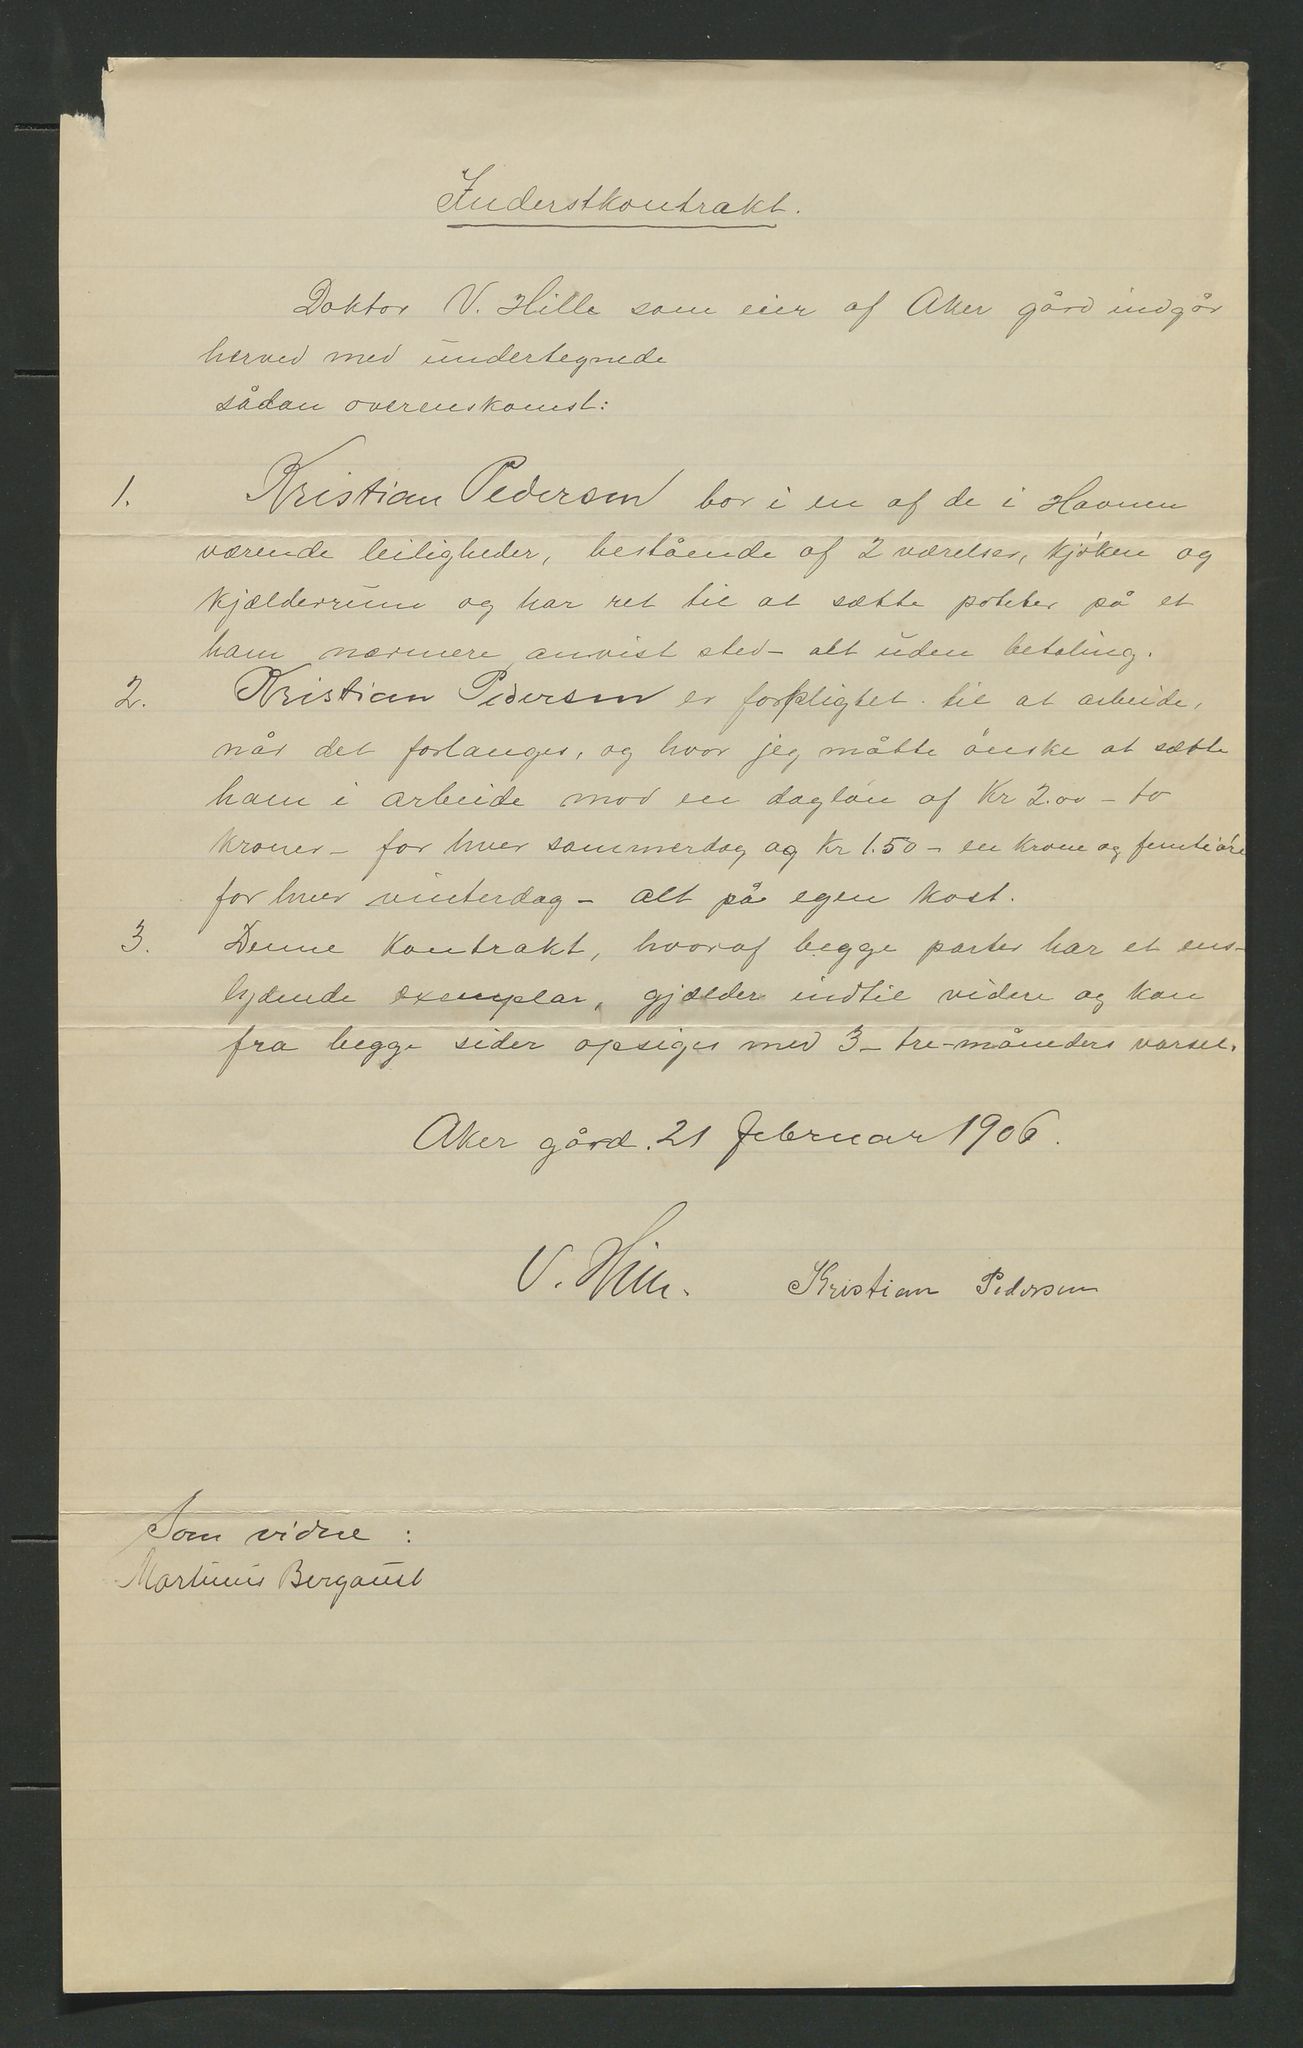 Inderstkontrakt.
Doktor V. Hille som eier af Aker gård indgår
herved med undertegnede
sådan overenskomst:
1. Kristian Pedersen bor i en af de i Havnen
værende leiligheder, bestående af 2 værelser, kjøken og
kjælderrum og har ret til at sætte poteter på et
ham nærmere anvist sted - alt uden betaling.
2. Kristian Pedersen er forpligtet til at arbeide,
når det forlanges, og hvor jeg måtte ønske at sætte
ham i arbeide mod en dagløn af Kr 2.00 - to
kroner - for hver sommerdag og Kr 1.50 - en krone og femtiøre
for hver vinterdag - alt på egen kost.
3. Denne kontrakt, hvoraf begge parter har et ens-
lydende exemplar, gjælder indtil videre og kan
fra begge sider opsiges med 3 - tre - måneders varsel.
Aker gård. 21 februar 1906.
V. Hille. Kristian Pedersen
Som vidne :
Martinius Bergaust